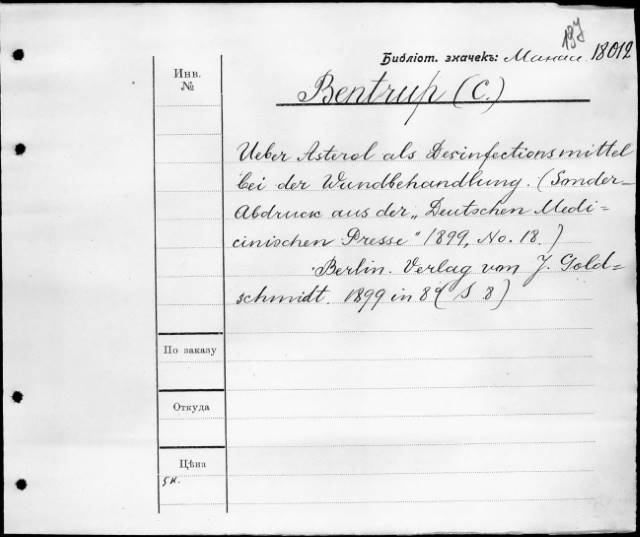 137
Библіот. значекъ: 18012
Инв.
№
Bentrup (C.)
Ueber Asterol als Desinfectionsmittel
bei der Wundbehandlung. (Sonder-
Abdruck aus der „Deutschen Medi=
cinischen Presse" 1899, No. 18.)
Berlin. Verlag von J. Gold=
schmidt. 1899 in 8° (S 8)
По заказу
Откуда
Цѣна